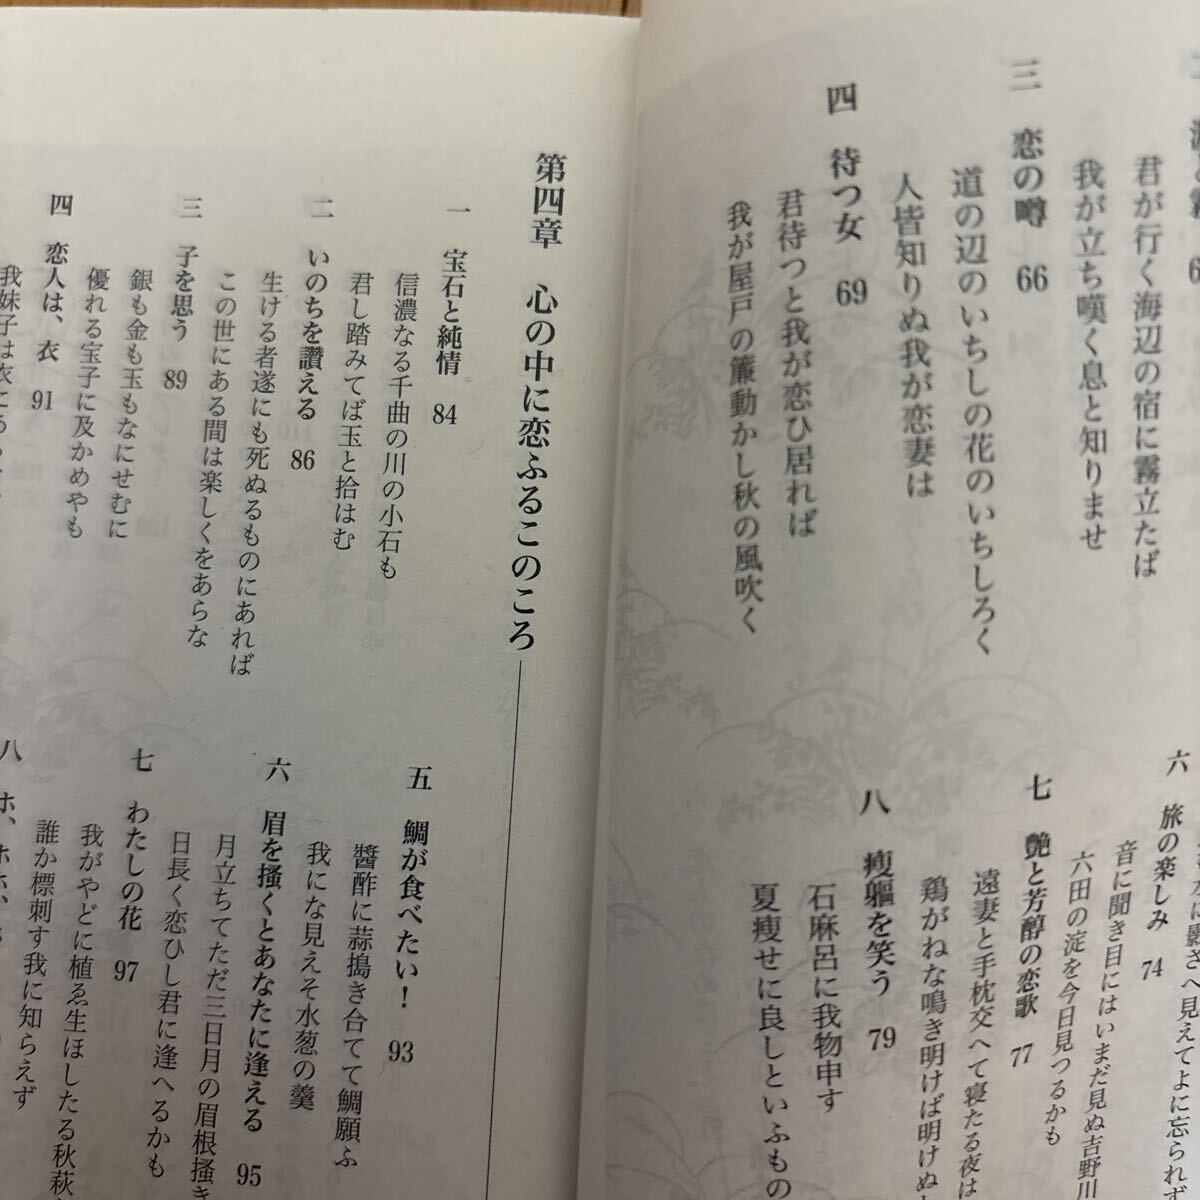 君が行く海辺の宿に霧立たば
我が立ち嘆く息と知りませ
三 恋の噂 66
道の辺のいちしの花のいちしろく
人皆知りぬ我が恋妻は
四 待つ女 69
君待つと我が恋ひ居れば
我が屋戸の簾動かし秋の風吹く
影さへ見えてよに忘られず
六 旅の楽しみ 74
音に聞き目にはいまだ見ぬ吉野川
六田の淀を今日見つるかも
七 艶と芳醇の恋歌 77
遠妻と手枕交へて寝たる夜は
鶏がねな鳴き明けば明けぬ
八 痩軀を笑う 79
石麻呂に我物申す
夏痩せに良しといふもの
第四章 心の中に恋ふるこのころ
一 宝石と純情 84
信濃なる千曲の川の小石も
君し踏みてば玉と拾はむ
二 いのちを讃える 86
生ける者遂にも死ぬるものにあれば
この世にある間は楽しくをあらな
三 子を思う 89
銀も金も玉もなにせむに
優れる宝子に及かめやも
四 恋人は、衣 91
我妹子は衣にあ
五 鯛が食べたい！ 93
醬酢に蒜搗き合てて鯛願ふ
我にな見えそ水葱の羹
六 眉を搔くとあなたに逢える 95
月立ちてただ三日月の眉根搔き
日長く恋ひし君に逢へるかも
七 わたしの花 97
我がやどに植ゑ生ほしたる秋萩
誰か標刺す我に知らえず
八 ホ、ホホ、